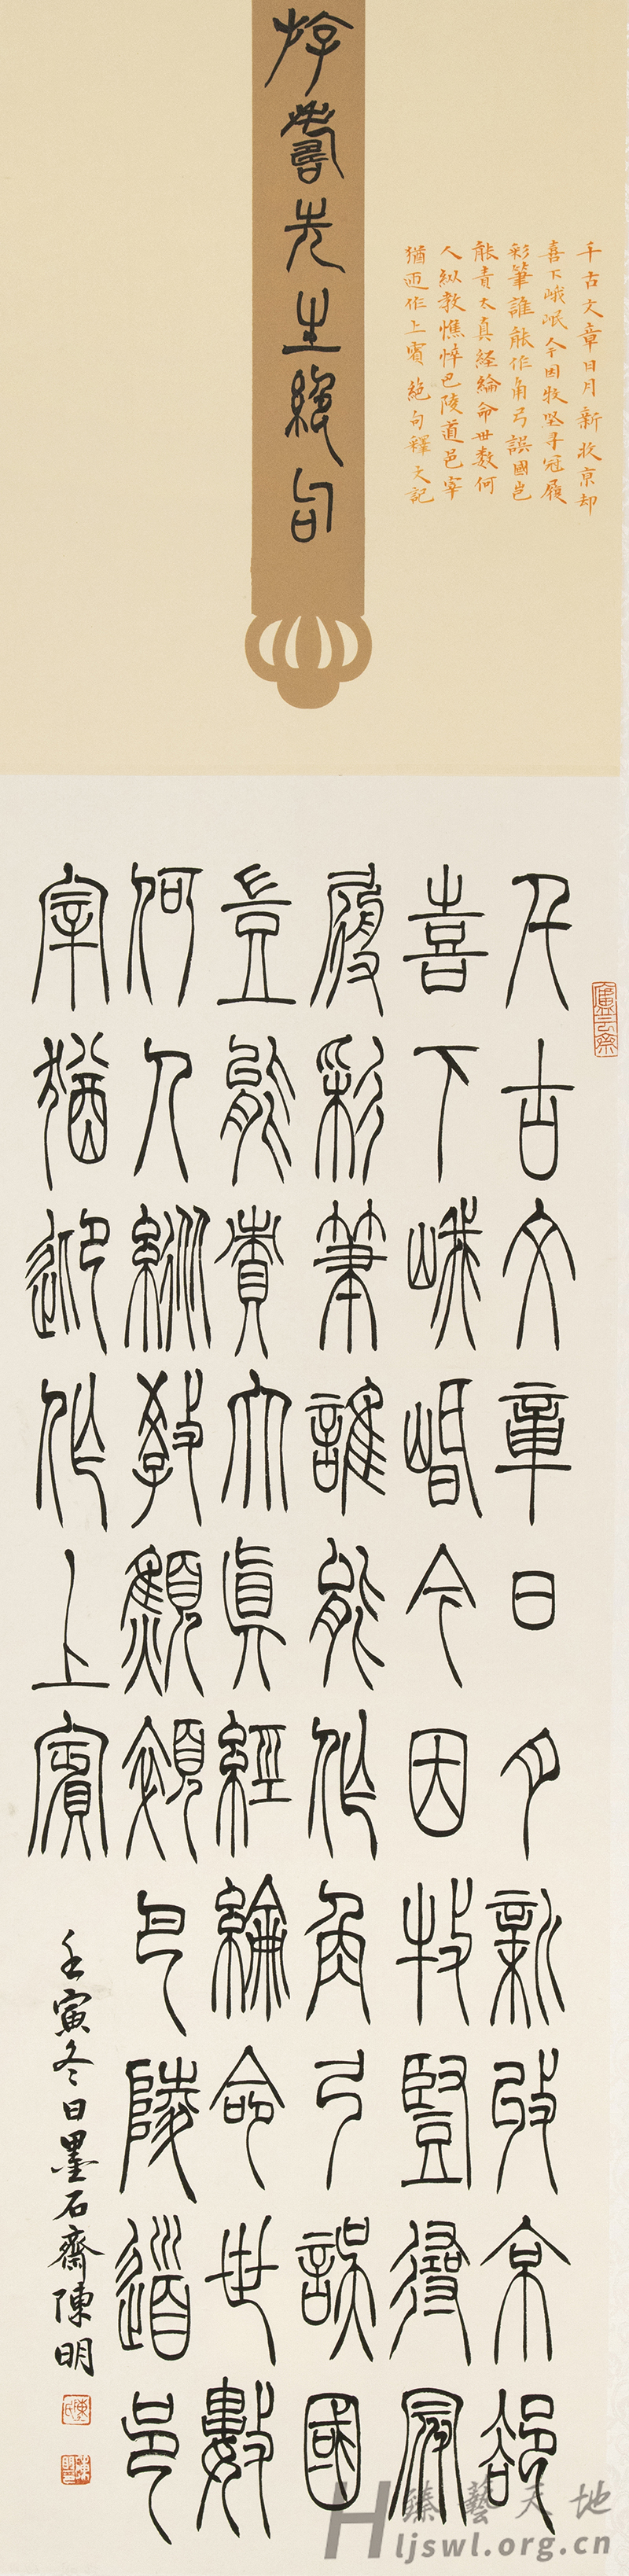 先生絶句
千古文章日月新收京却
喜下峨岷今因牧坚㝵冠履
彩筆誰能作角弓誤國豈
能責太真経綸命世数何
人纵教憔悴巴陵道邑宰
猶迎作上賓 絶句釋文記
千古文章日月新收京却
喜下峨岷今因牧豎得冠
履彩筆誰能作角弓誤國
豈能責太真經綸命世數
何人縱教顦顇巴陵道邑
宰猶迎作上賓
壬寅冬日墨石齋陳明
臻藝天地
ljswl.org.cn